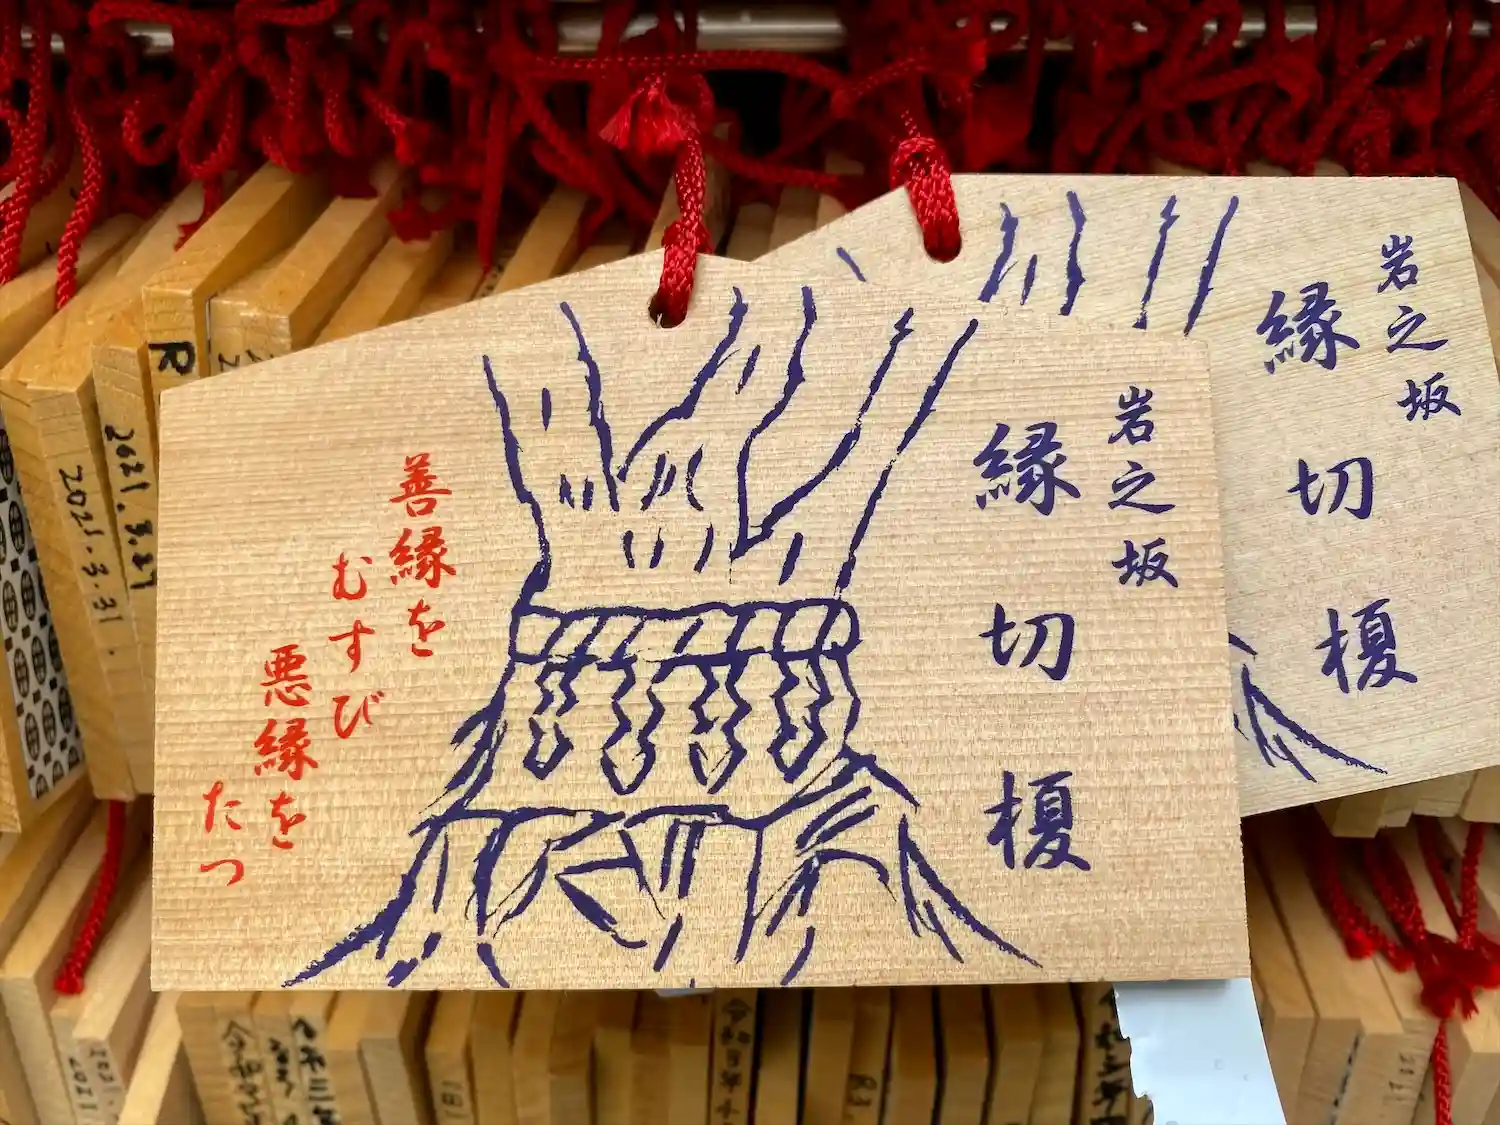 岩之坂
縁切榎
善縁を
むすび
悪縁を
たつ
岩之坂
縁切榎
R
2021.3.27
2021.3.31